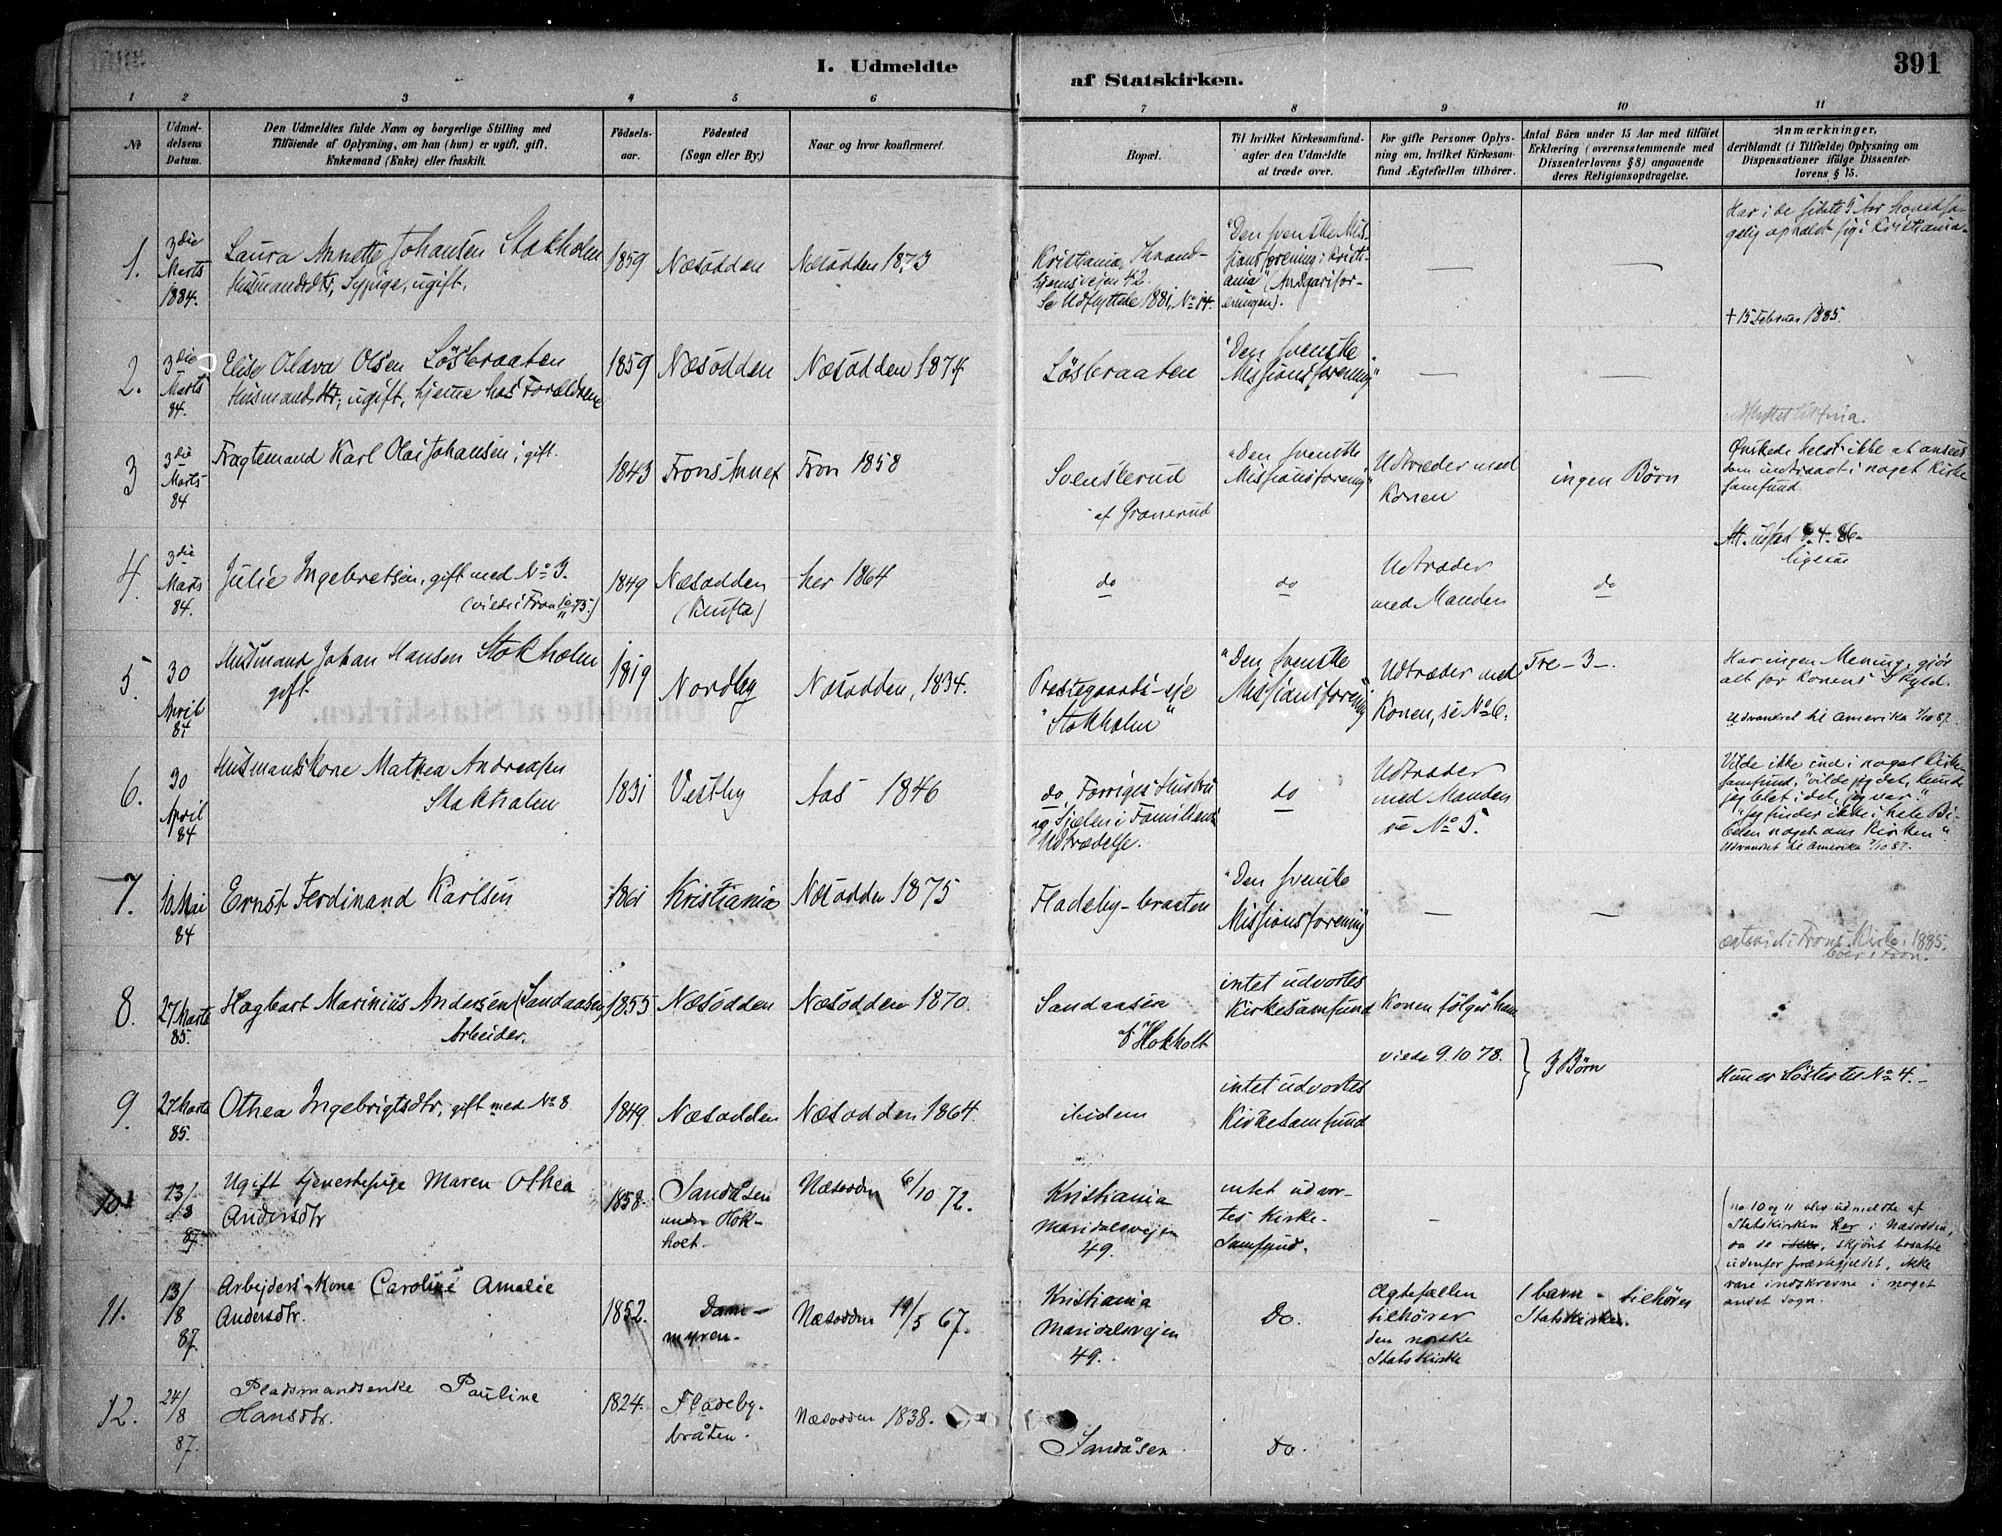 I. Udmeldte af Statskirken.
391
1 2 3 4 5 6 7 8 9 10 11
No
Udmel-
delsens
Datum.
Den Udmeldtes fulde Navn og borgerlige Stilling med
Tilföiende af Oplysning, om han (hun) er ugift, gift,
Enkemand (Enke) eller fraskilt.
Födsels-
aar.
Födested
(Sogn eller By.)
Naar og hvor konfirmeret.
Bopæl.
Til hvilket Kirkesamfund-
agter den Udmeldte
at træde over.
For gifte Personer Oplys-
ning om, hvilket Kirkesam-
fund Ægtefællen tilhörer.
Antal Börn under 15 Aar med tilföiet
Erklæring (overensstemmende med
Dissenterlovens § 8) angaaende
deres Religionsopdragelse.
Anmærkninger,
deriblandt (i Tilfælde) Oplysning om
Dispensationer ifölge Dissenter-
lovens § 15.
1.
3die
Marts
1884.
Laura Annette Johansen Stokholm
Husmandsdtr, Sypige, ugift.
1859
Næsodden
Næsodden 1873
Kristiania, Trond-
hjemsvejen 42.
Se Udflyttede 1881, No 14.
"Den svenske Mis-
sionsforening i Kristi-
ania" (Andgariifor-
eningen).
—
—
Har i de sidste 5 Aar hovedsa-
gelig opholdt sig i Kristiania.
+ 15 Februar 1885.
2.
3die
Marts
84.
Elise Olava Olsen Løsbraaten
Husmandsdtr; ugift, hjemme hos Forældrene
1859
Næsodden
Næsodden 1874
Løsbraaten
"Den svenske
Missionsforening"
—
—
3
3die
Marts
84
Fragtemand Karl Olai Johansen; gift.
1843
Frons Annex
Fron 1858
Svenskerud
af Granerud
"Den svenske
Missionsforening"
Udtræder med
Konen
ingen Børn
Ønskede helst ikke at ansees
som indtraadt i noget Kirke
samfund.
Att. udsted 9.4.86
4.
3die
Marts
84.
Julie Ingebretsen, gift med No 3.
1849
Næsodden
her 1864
do
do
Udtræder
med Manden
do
ligesaa
5.
30
April
84
Husmand Johan Hansen Stokholm
gift.
1819
Nordby
Næsodden, 1834.
Præstegaards-eje
"Stokholm"
"Den svenske
Missionsforening"
Udtræder med
Konen, se No 6.
Tre – 3 –.
Har ingen Mening, gjør
alt for Konens Skyld.
Udvandret til Amerika 7/10 87.
6.
30
April
84
Husmandskone Mathea Andreasen
Stokholm
1831
Vestby
Aas 1846
do Forriges Hustru
og Sjælen i Familiens
Udtrædelse.
do
Udtræder
med Manden
se No 5.
Vilde ikke ind i noget Kirke-
samfund; "vilde jeg det, kunde
jeg blet i det, jeg var."
"Jeg finder ikke i hele Bi-
belen noget om Kirken"
Udvandret til Amerika 7/10 87.
7.
10 Mai
84
Ernst Ferdinand Karlsen
1861
Kristiania
Næsodden 1875
Fladeby-braaten
"Den svenske
Missionsforening"
—
—
ægteviet i Frons Kirke 1885.
boer i Fron.
8.
27 Marts
85.
Hagbart Marinius Andersen (Sandaasen)
Arbeider.
1855
Næsodden
Næsodden 1870.
Sandaasen
u/ Hokholt
intet udvortes
Kirkesamfund
Konen følger ham
viede 9.10 78.
3 Børn
9.
27 Marts
85.
Othea Ingebrigtsdtr, gift med No 8
1849.
Næsodden
Næsodden 1864.
ibidem
intet udvortes
Kirkesamfund
Hun er Søster til No 4. –
10.
13/8
87.
Ugift tjenestepige Maren Othea
Andersdtr
1858.
Sandåsen
under Hok-
holt.
Næsodden 6/10 72.
Kristiania
Maridalsvejen
49.
intet udvor-
tes Kirke-
samfund.
–
no 10 og 11 blev udmeldte af
Statskirken her i Næsodden,
da de ikke, skjönt bosatte
udenfor præstegjeldet, ikke
vare indskrevne i noget
andet sogn.
11.
13/8
87.
Arbejders Kone Caroline Amalie
Andersdtr.
1852.
Dam-
myren.
Næsodden 19/5 67.
Kristiania
Maridalsvejen
49.
Do.
Ægtefællen
tilhører
den norske
Statskirke
1 barn – tilhører
Statskirken.
12.
24/8
87.
Pladsmandsenke Pauline
Hansdtr.
1824.
Fladeby-
bråten.
Næsodden 1838.
Sandåsen
Do.